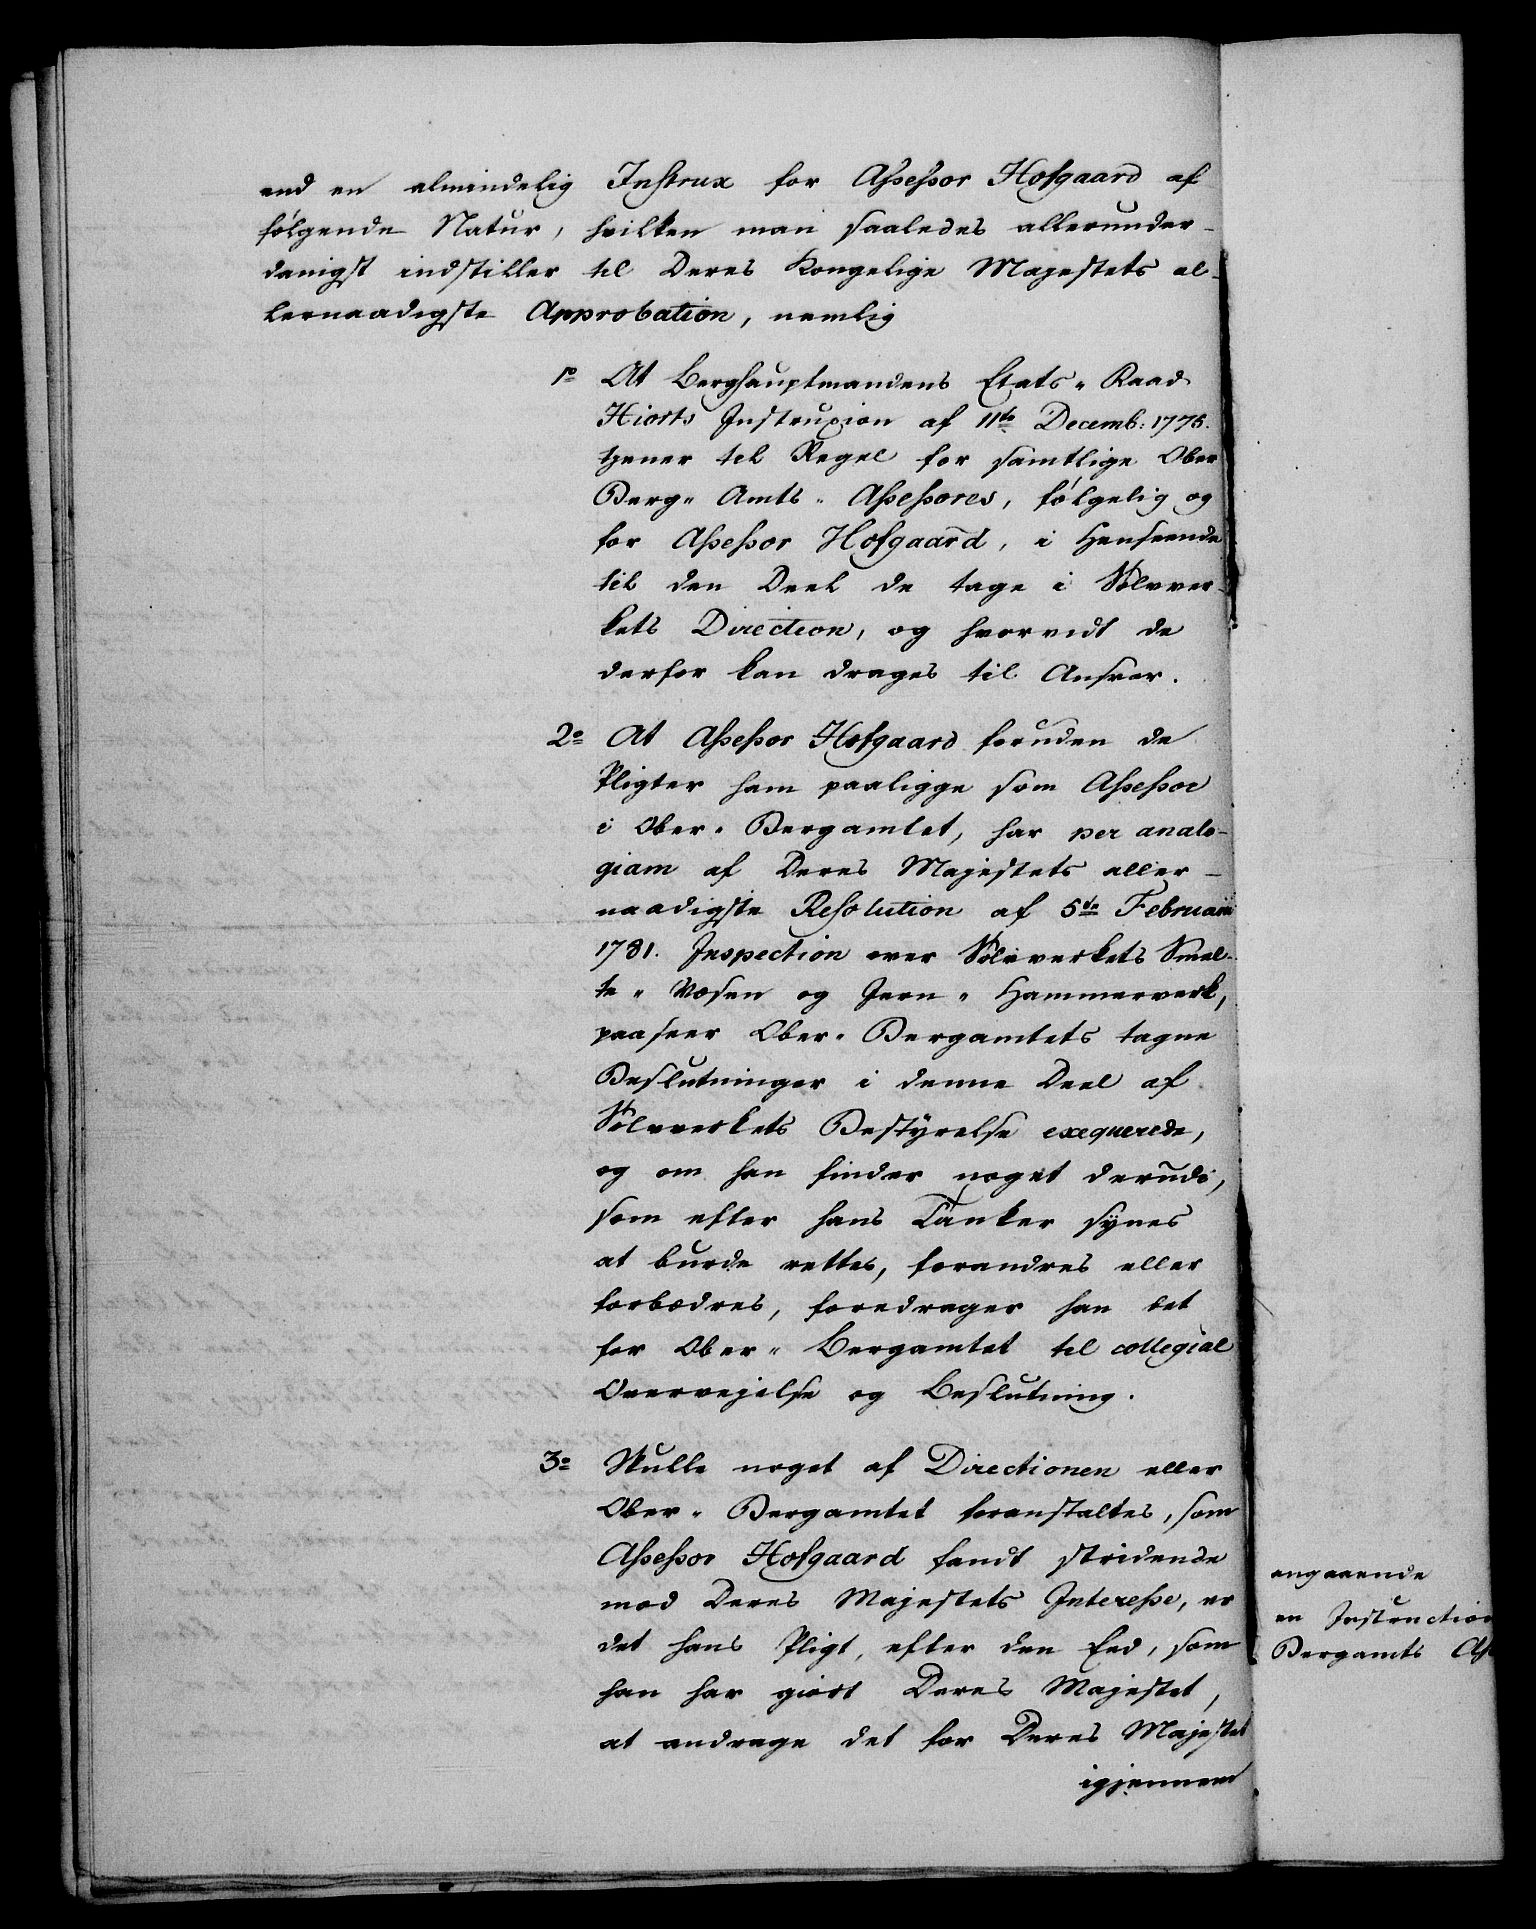 end en almindelig Instrux for Assessor Hofgaard af
følgende Natur, hvilken man saaledes allerunder-
danigst indstiller til Deres Kongelige Majestets al-
lernaadigste Approbation, nemlig
1o At Berghauptmandens Etats-Raad
Hiorts Instruxion af 11te Decemb: 1775.
tjener til Regel for samtlige Ober
Berg-Amts-Assessores, følgelig og
for Assessor Hofgaard, i Henseende
til den Deel de tage i Sølvver-
kets Direction, og hvorvidt de
derfor kan drages til Ansvar.
2o At Assessor Hofgaard foruden de
Pligter ham paaligge som Assessor
i Ober-Bergamtet, har per analo-
giam af Deres Majestets aller-
naadigste Resolution af 5te Februarii
1781. Inspection over Sølvverkets Smel-
te-Væsen og Jern-Hammerverk,
paaseer Ober-Bergamtets tagne
Beslutninger i denne Deel af
Sølvverkets Bestyrelse exequerede,
og om han finder noget derudi,
som efter hans Tanker synes
at burde rettes, forandres eller
forbædres, foredrager han det
for Ober-Bergamtet til collegial
Overvejelse og Beslutning.
3o Skulle noget af Directionen eller
Ober-Bergamtet foranstaltes, som
Assessor Hofgaard fandt stridende
mod Deres Majestets Interesse, er
det hans Pligt, efter den Eed, som
han har giort Deres Majestet,
at andrage det for Deres Majestet
igjennem
angaaende
en Instruction
Bergamts Ass